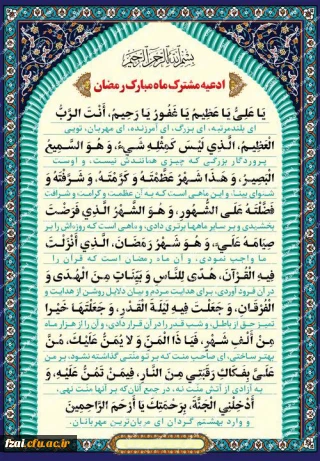 بسم الله الرحمن الرحیم
ادعیه مشترک ماه مبارک رمضان
یَا عَلِیُّ یَا عَظِیمُ، یَا غَفُورُ یَا رَحِیمُ، أَنْتَ الرَّبُّ
ای بلندمرتبه، ای بزرگ، ای آمرزنده، ای مهربان، تویی
الْعَظِیمُ، الَّذِی لَیْسَ کَمِثْلِهِ شَیْءٌ، وَ هُوَ السَّمِیعُ
پروردگار بزرگی که چیزی همانندش نیست، و اوست
الْبَصِیرُ، وَ هَذَا شَهْرٌ عَظَّمْتَهُ وَ کَرَّمْتَهُ، وَ شَرَّفْتَهُ وَ
شنوای بینا، و این ماهی است که به آن عظمت و کرامت، و شرافت
فَضَّلْتَهُ عَلَی الشُّهُورِ، وَ هُوَ الشَّهْرُ الَّذِی فَرَضْتَ
بخشیدی و بر سایر ماهها برتری دادی، و ماهی است که روزه‌اش را بر
صِیَامَهُ عَلَیَّ، وَ هُوَ شَهْرُ رَمَضَانَ، الَّذِی أَنْزَلْتَ
ما واجب نمودی، و آن ماه رمضان است که قرآن را
فِیهِ الْقُرْآنَ، هُدًی لِلنَّاسِ وَ بَیِّنَاتٍ مِنَ الْهُدَی وَ
در آن فرود آوردی، برای هدایت مردم و بیان دلایل روشن از هدایت و
الْفُرْقَانِ، وَ جَعَلْتَ فِیهِ لَیْلَةَ الْقَدْرِ، وَ جَعَلْتَهَا خَیْرًا
تمیز حق از باطل، و شب قدر را در آن قرار دادی، و آن را از هزار ماه
مِنْ أَلْفِ شَهْرٍ، فَیَا ذَا الْمَنِّ وَ لَا یُمَنُّ عَلَیْکَ، مُنَّ
بهتر ساختی، ای صاحب منت که بر تو منتی گذاشته نشود، بر من
عَلَیَّ بِفَکَاکِ رَقَبَتِی مِنَ النَّارِ، فِیمَنْ تَمُنُّ عَلَیْهِ، وَ
به آزادی از آتش منت نه، در جمع آنان‌که بر آنها منت نهی،
أَدْخِلْنِی الْجَنَّةَ، بِرَحْمَتِکَ یَا أَرْحَمَ الرَّاحِمِینَ
و وارد بهشتم گردان ای مهربان‌ترین مهربانان.
fzai.cfu.ac.ir